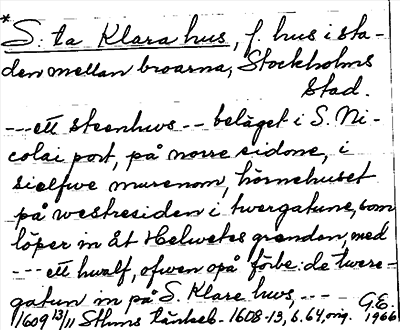 * S:ta Klara hus, f. hus i sta-
den mellan broarna, Stockholms
Stad.
--- ett steenhws -- beläget i S. Ni-
colai port, på norre sidone, i
sielfwe murenom, hörnehuset
på westresiden i twergatune, som
löper in åt Helwetes grenden, med
--- ett hwalf, ofwen opå förbe:de twere-
gatun in på S. Klare hws, ---
1609 13/11 Sthms tänkeb. 1608-13, s. 64, orig. G.E. 1966